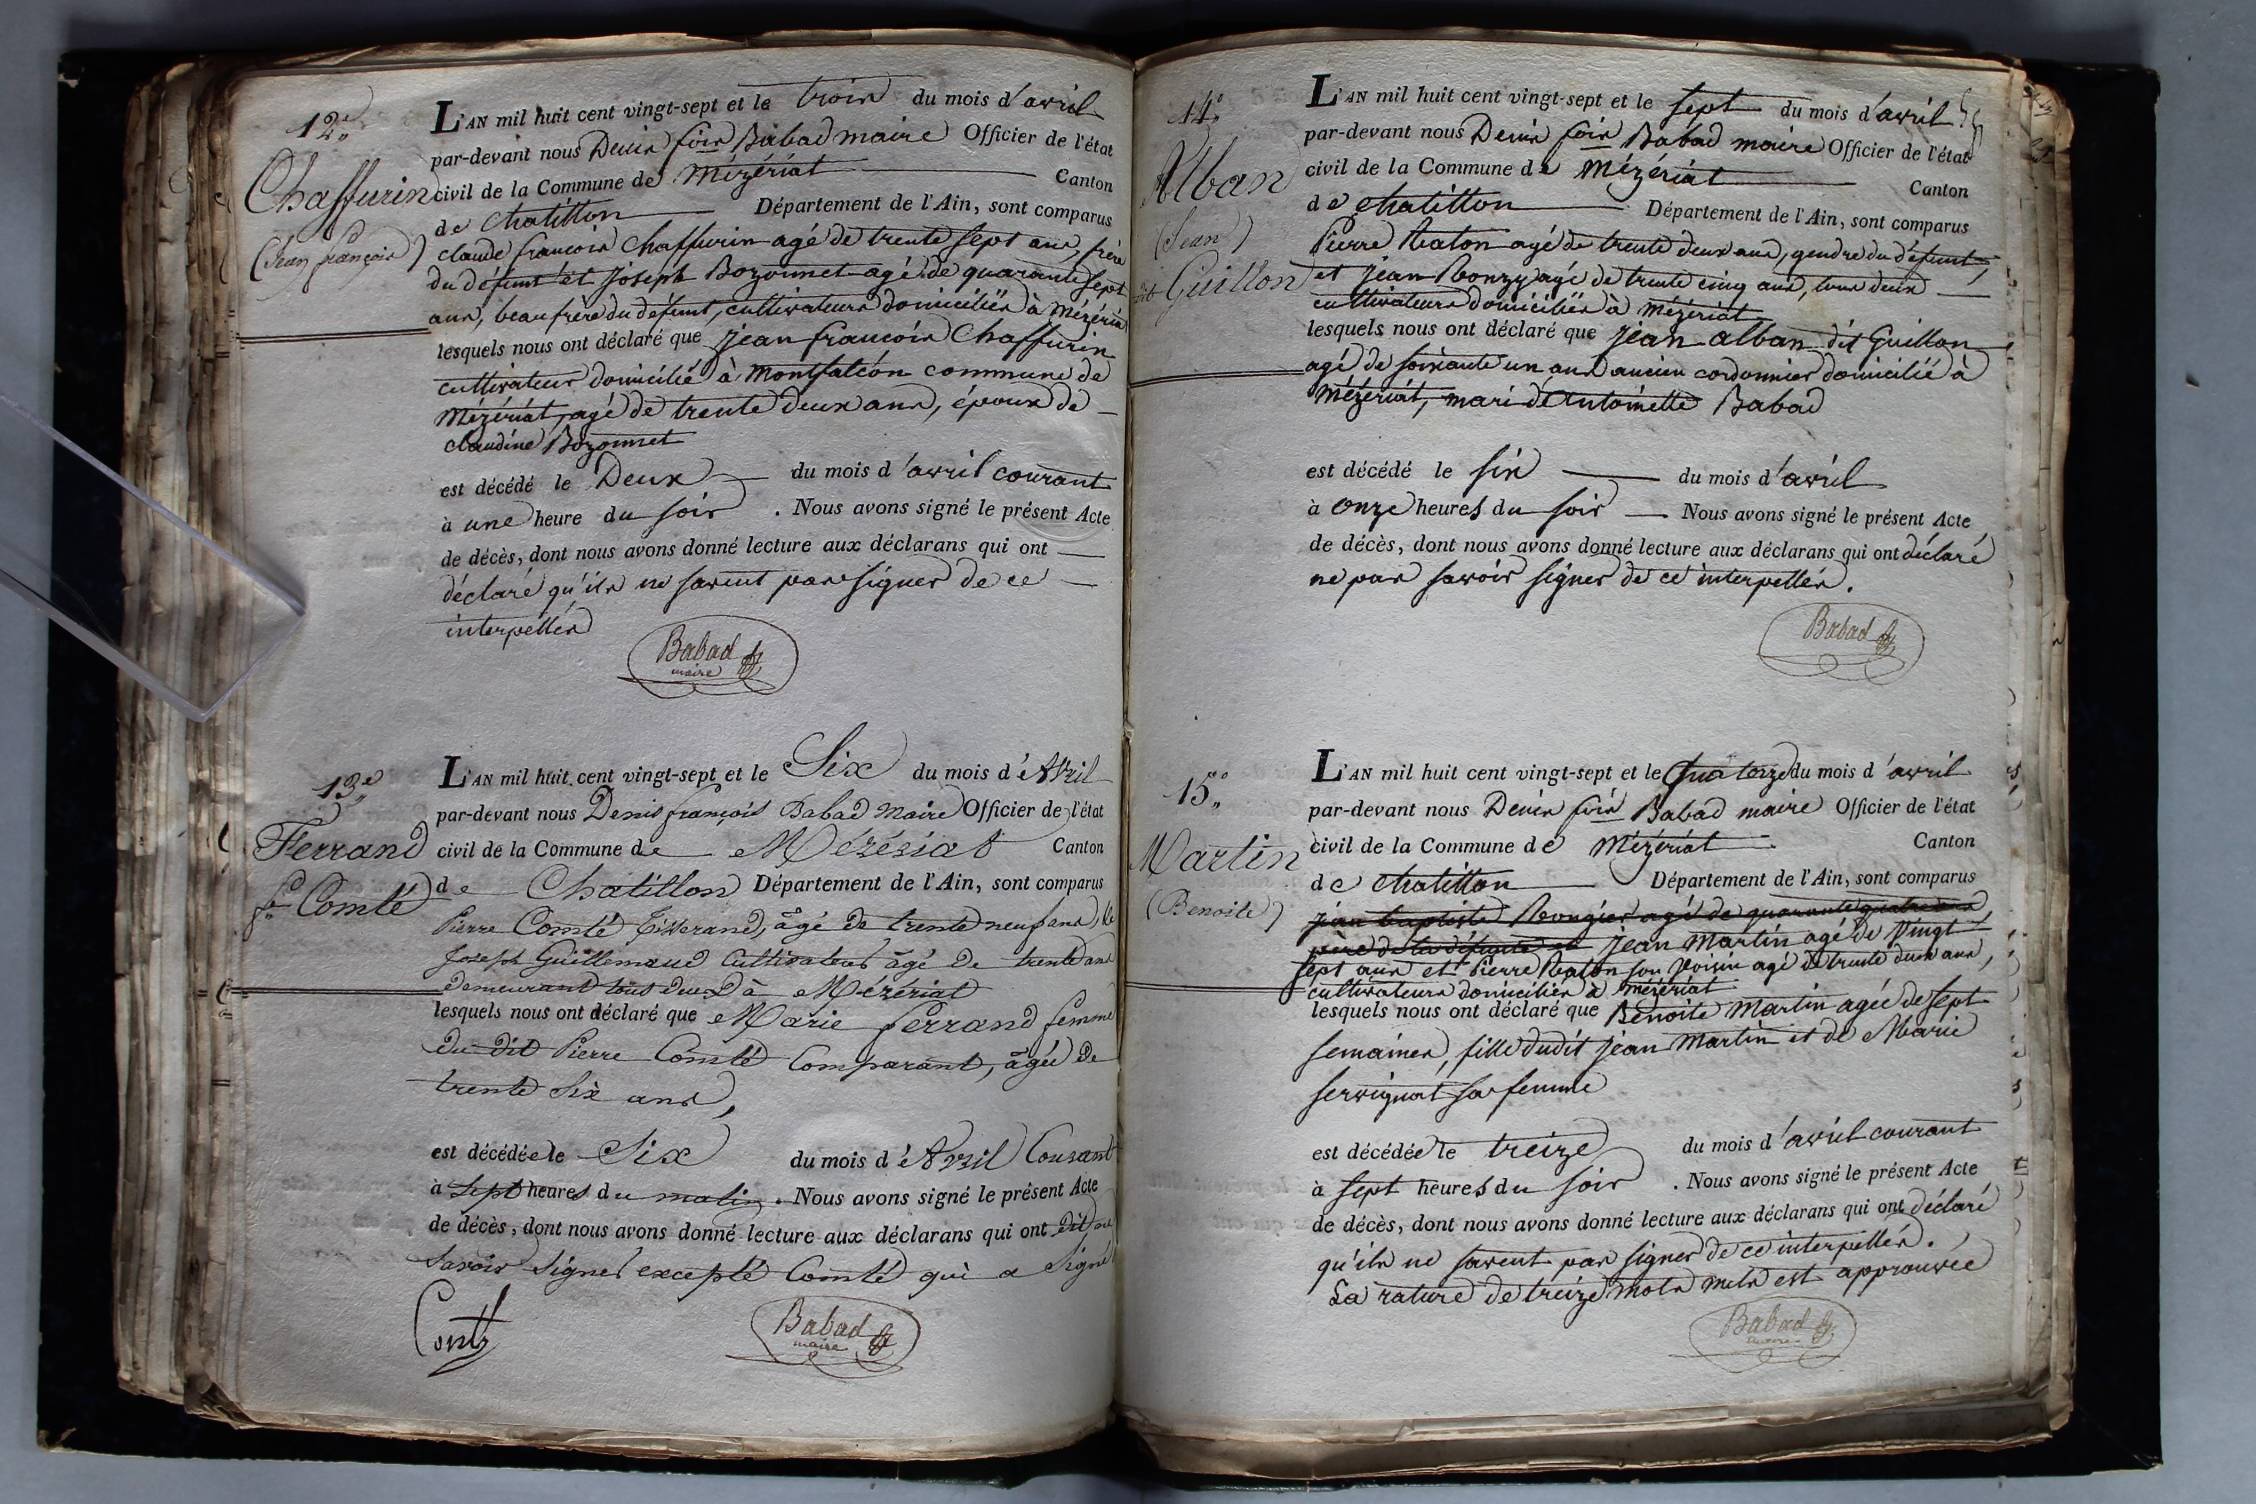 12e
Chaffurin
(Jean françois)
L'AN mil huit cent vingt-sept et le trois du mois d'avril
par-devant nous Denis fois Babad maire Officier de l'état
civil de la Commune de Mézériat Canton
de chatillon Département de l'Ain, sont comparus
claude francois Chaffurin agé de trente sept ans, frère
du défunt et Joseph Bozonnet agé de quarante sept
ans, beau frère du défunt, cultivateurs domiciliés à Mézériat
lesquels nous ont déclaré que jean francois Chaffurin
cultivateur domicilié à Montfalcon commune de
Mézériat, agé de trente deux ans, époux de
claudine Bozonnet
est décédé le Deux du mois d'avril courant
à une heure du soir . Nous avons signé le présent Acte
de décès, dont nous avons donné lecture aux déclarans qui ont
déclaré qu'ils ne savent pas signer de ce
interpellés
Babad
maire
13e
Ferrand
fe Comte
L'AN mil huit cent vingt-sept et le Six du mois d'Avril
par-devant nous Denis françois Babad Maire Officier de l'état
civil de la Commune de Mézériat Canton
de Chatillon Département de l'Ain, sont comparus
Pierre Comte Tisserand, âgé de trente neuf ans, et
Joseph Guillemaud Cultivateur âgé de trente ans
demeurant tous deux à Mezériat
lesquels nous ont déclaré que Marie ferrand femme
du dit Pierre Comte Comparant, âgée de
trente Six ans,
est décédée le Six du mois d'Avril Courant
à Sept heures du matin . Nous avons signé le présent Acte
de décès, dont nous avons donné lecture aux déclarans qui ont dit ne
Savoir Signer excepté Comte qui a Signé
Comte
Babad
maire
14e
Alban
(Jean)
dit Guillon
L'AN mil huit cent vingt-sept et le sept du mois d'avril
par-devant nous Denis fois Babad maire Officier de l'état
civil de la Commune de Mézériat Canton
de chatillon Département de l'Ain, sont comparus
Pierre Raton agé de trente deux ans, gendre du défunt,
et jean Ronzy agé de trente cinq ans, tous deux
cultivateurs domiciliés à Mézériat
lesquels nous ont déclaré que jean alban dit Guillon
agé de soixante un ans ancien cordonnier domicilié à
Mézériat, mari d'Antoinette Babad
est décédé le six du mois d'avril
à onze heures du soir Nous avons signé le présent Acte
de décès, dont nous avons donné lecture aux déclarans qui ont déclaré
ne pas savoir signer de ce interpellés.
Babad
15e
Martin
(Benoite)
L'AN mil huit cent vingt-sept et le Quatorze du mois d'avril
par-devant nous Denis fois Babad maire Officier de l'état
civil de la Commune de Mézériat Canton
de chatillon Département de l'Ain, sont comparus
jean baptiste Rongier agé de quarante quatre ans,
père de la défunte et jean Martin agé de vingt
sept ans et Pierre Raton son voisin agé de trente deux ans,
cultivateurs domiciliés à Mézériat
lesquels nous ont déclaré que Benoite Martin agée de sept
semaines, fille dudit jean Martin et de Marie
servignat sa femme
est décédée le treize du mois d'avril courant
à sept heures du soir . Nous avons signé le présent Acte
de décès, dont nous avons donné lecture aux déclarans qui ont déclaré
qu'ils ne savent pas signer de ce interpellés.
La rature de treize mots nuls est approuvée
Babad
maire